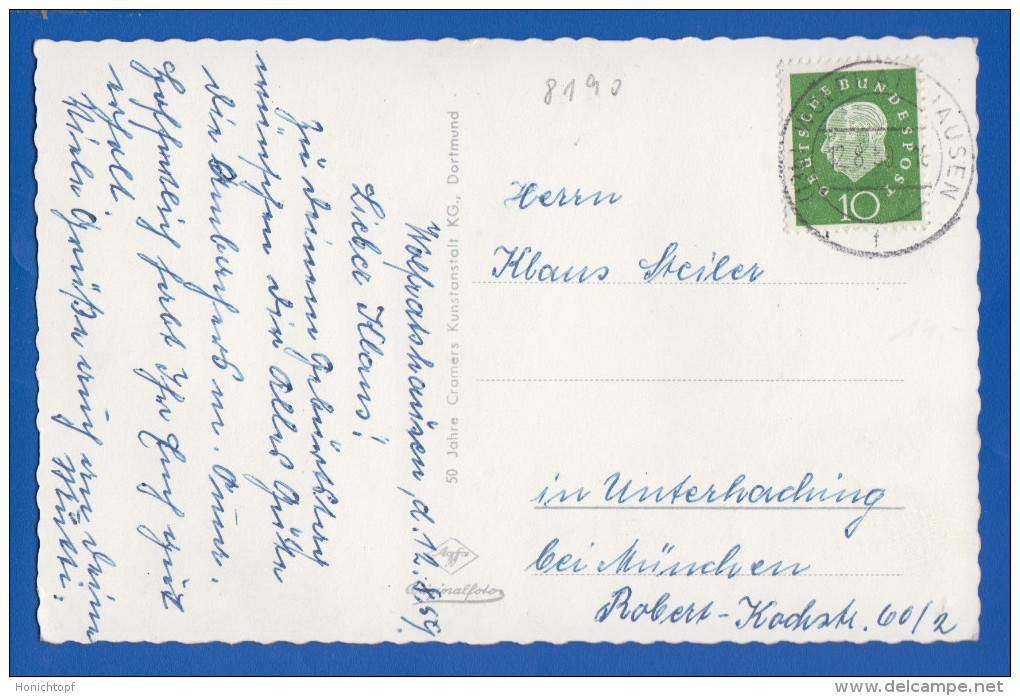 Wolfratshausen, d. 12.8.59.
Lieber Klaus!
Zu deinem Geburtstag
wünschen dir alles Gute
die
Hoffentlich habt Ihr Euch gut
erholt.
Viele Grüße auch an deine
Mutti.
50 Jahre Cramers Kunstanstalt KG., Dortmund
Agfa
Originalfoto
8190
DEUTSCHE BUNDESPOST
10
HAUSEN
12.8.
f
Herrn
Klaus Steiler
in Unterhaching
bei München
Robert-Kochstr. 60/2
Honichtopf
www.delcampe.net